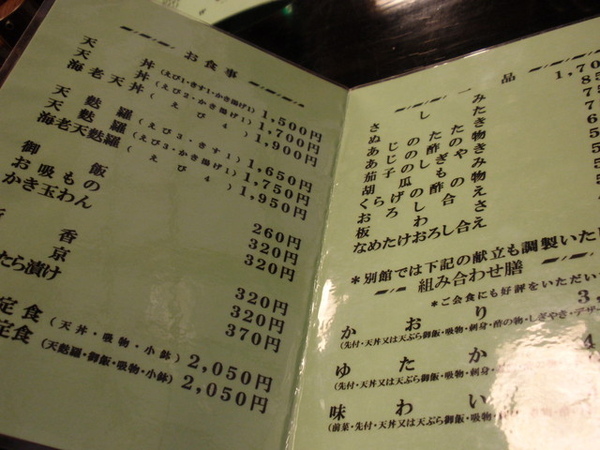 お食事
天丼(えび1・きす1・かき揚げ1) 1,500円
天丼(えび2・かき揚げ1) 1,700円
海老天丼(えび4) 1,900円
天麩羅(えび3・きす1) 1,650円
天麩羅(えび3・かき揚げ1) 1,750円
海老天麩羅(えび4) 1,950円
御飯 260円
お吸もの 320円
かき玉わん 320円
香 320円
京 320円
たら漬け 370円
定食(天丼・吸物・小鉢) 2,050円
定食(天麩羅・御飯・吸物・小鉢) 2,050円
一品
さしみ
ぬた
あじのたたき
あじの酢の物
茄子のしぎやき
胡瓜もみ
くらげの酢の物
おろし合え
板わさ
なめたけおろし合え
*別館では下記の献立も調製いた
組み合わせ膳
*ご会食にも好評をいただい
かおり 3,
(先付・天丼又は天ぷら御飯・吸物・刺身・酢の物・しぎやき・デザー
ゆたか 4
(先付・天丼又は天ぷら御飯・吸物・刺身・
味わい
(前菜・先付・天丼又は天ぷら御飯・吸物・